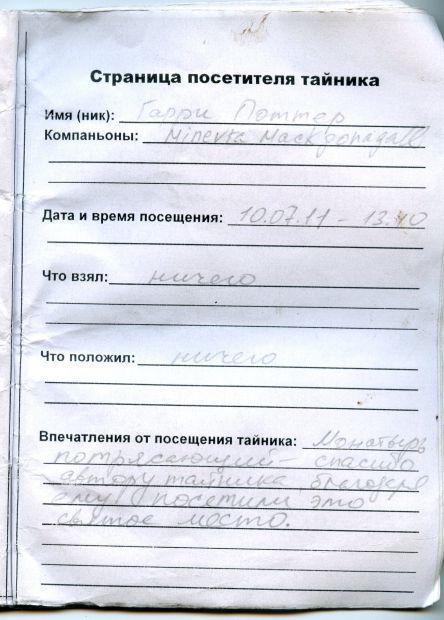 Страница посетителя тайника
Имя (ник): Гарри Поттер
Компаньоны: Minevra Mack'gonagall
Дата и время посещения: 10.07.11 - 13.40
Что взял: ничего
Что положил: ничего
Впечатления от посещения тайника: Монастырь
потрясающий - спасибо
автору тайника, благодаря
ему посетили это
святое место.